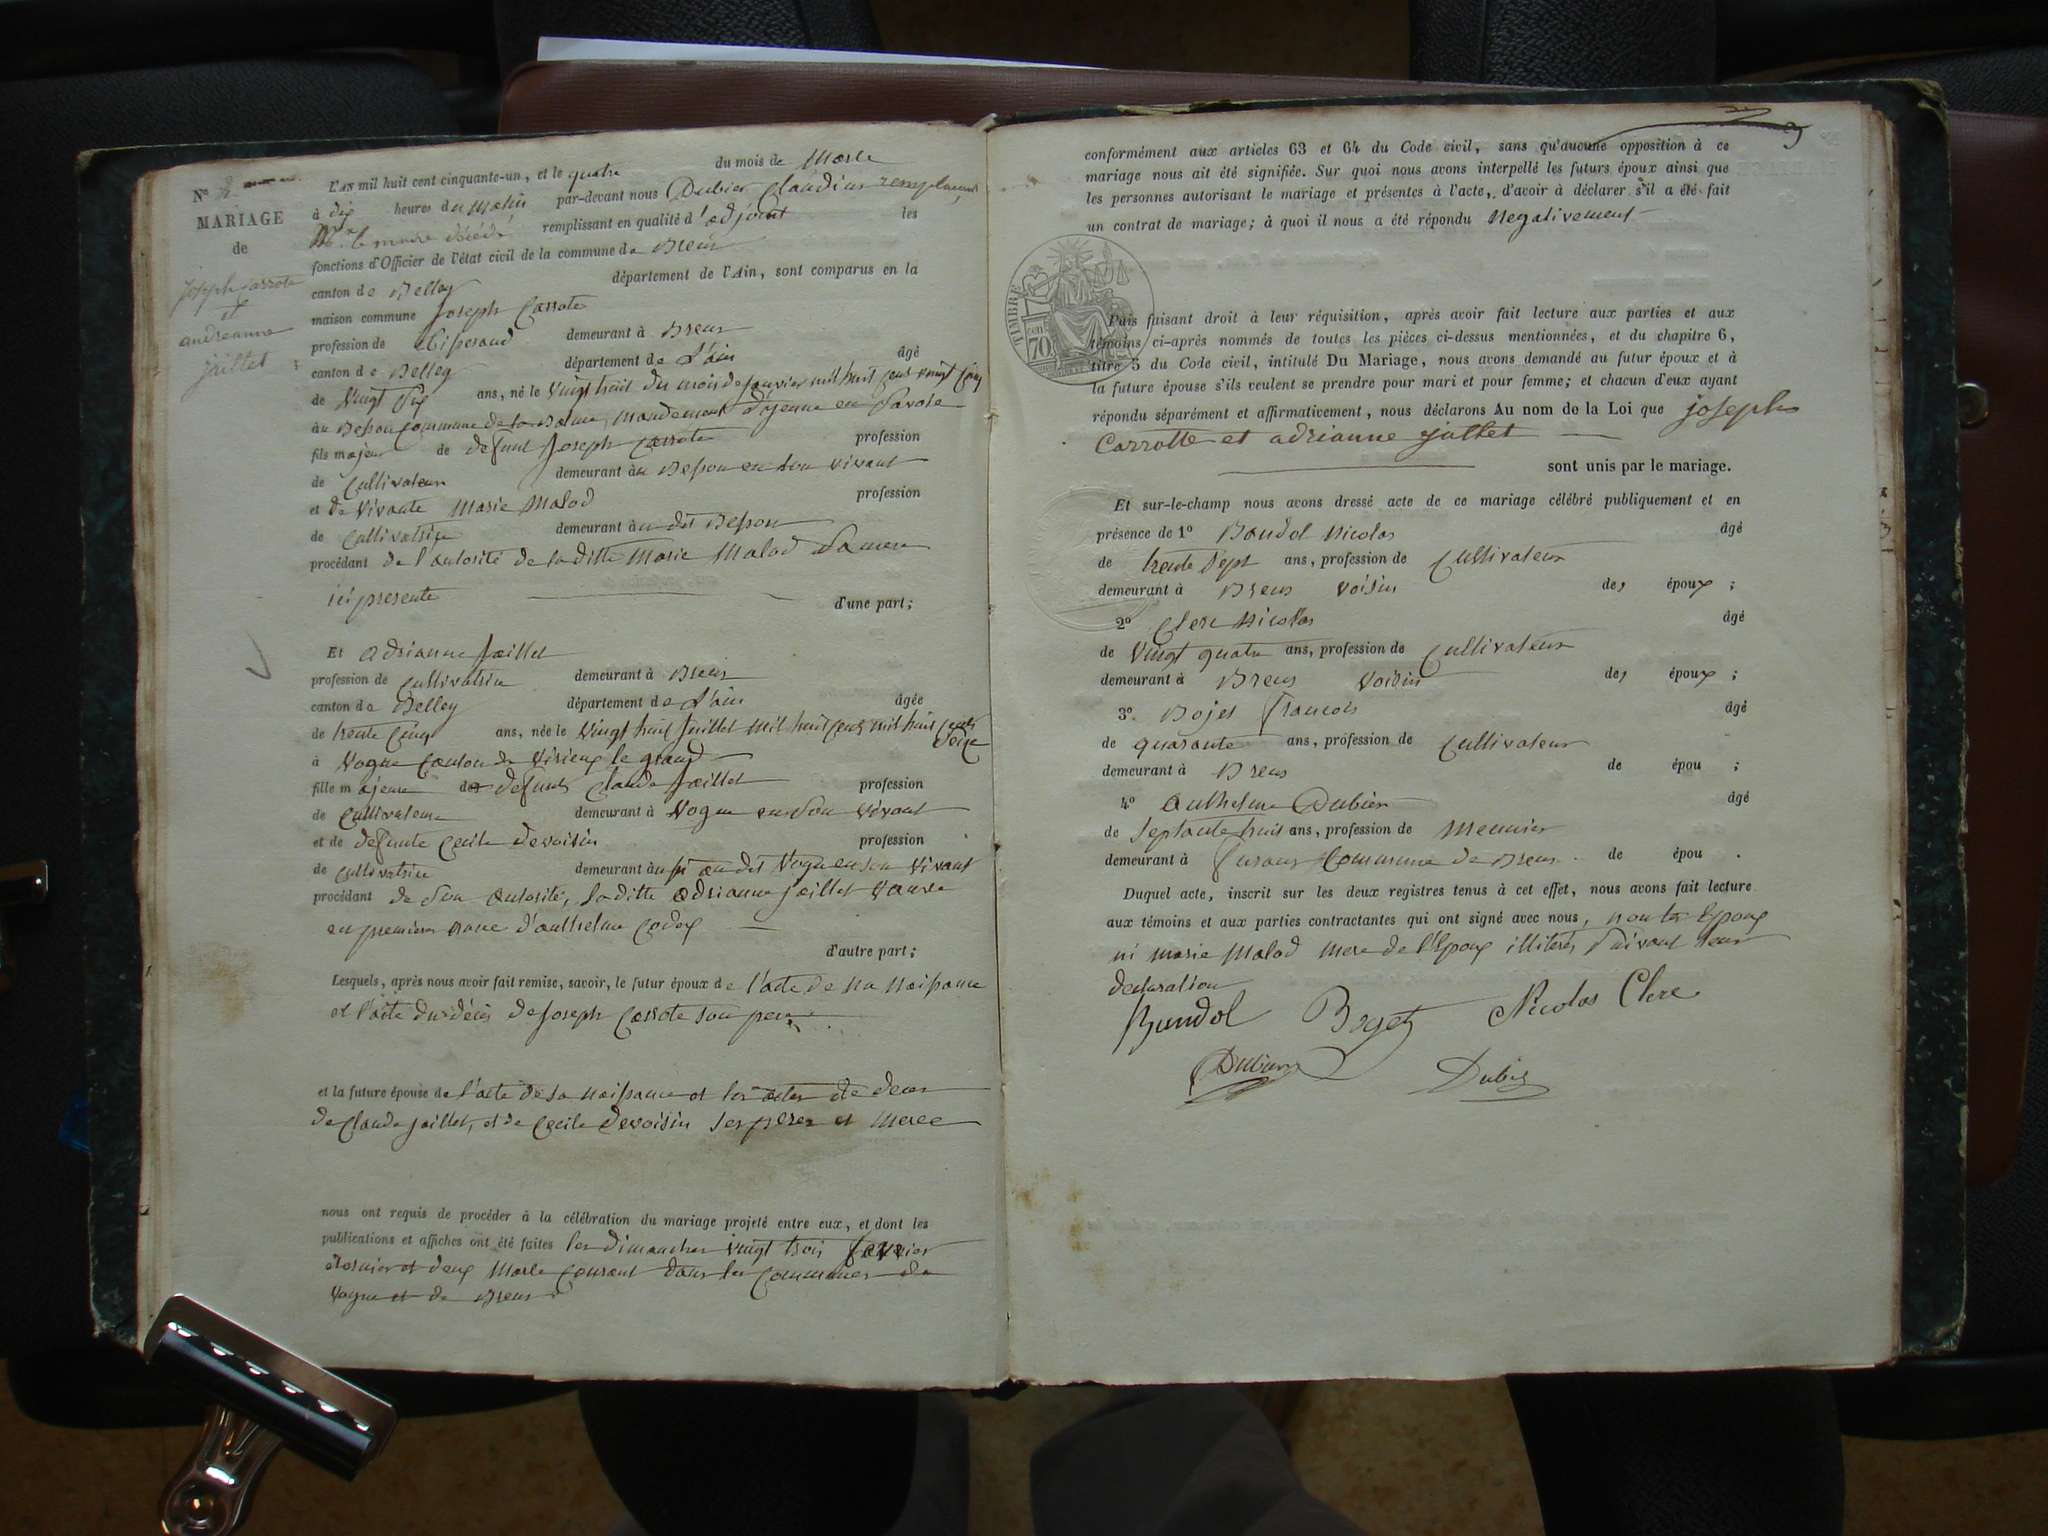 N° 2
MARIAGE
de
joseph Carrote
et
andreanne
jaillet
L'AN mil huit cent cinquante-un, et le quatre du mois de Marse
à dix heures du Matin par-devant nous Dubier Claudius remplacent
Mr le maire décédé remplissant en qualité d'adjoint les
fonctions d'Officier de l'état civil de la commune de Brens
canton de Belley département de l'Ain, sont comparus en la
maison commune Joseph Carrote
profession de demeurant à Brens
canton de Belley département de L'ain âgé
de Vingt Six ans, né le Vingt huit du mois de Janvier mil huit cent vingt cinq
au Besson Commune de la Balme, mandement d'yenne en Savoie
fils majeur de defunt Joseph Carrote profession
de Cultivateur demeurant au Besson en son vivant
et de Vivante Marie Malod profession
de Cultivatrice demeurant au dit Besson
procédant de l'autorité de la ditte Marie Malod Sa mere
ici presente d'une part;
Et Adrianne Jaillet
profession de Cultivatrice demeurant à Brens
canton de Belley département de L'ain âgée
de trente Cinq ans, née le Vingt huit Juillet mil huit cent mil huit cent
Seize
à Vogne Canton de Virieux le grand
fille majeure de defunt Claude Jaillet profession
de Cultivateur demeurant à Vogne en Son vivant
et de defunte Cecile Devoisin profession
de Cultivatrice demeurant au dit Vogne en son Vivant
procédant de Son Autorité, la ditte Adrianne Jaillet Veuve
en premiere noce d'anthelme Codex
d'autre part;
Lesquels, après nous avoir fait remise, savoir, le futur époux de l'acte de sa Naissance
et l'acte du décès de Joseph Carrote son pere
et la future épouse de l'acte de sa naissance et les actes de deces
de Claude Jaillet, et de Cecile Devoisin Ses peres et Mere
nous ont requis de procéder à la célébration du mariage projeté entre eux, et dont les
publications et affiches ont été faites les dimanches vingt trois fevrier
dernier et deux Marse Courant dans les Communes de
Vogne et de Brens
conformément aux articles 63 et 64 du Code civil, sans qu'aucune opposition à ce
mariage nous ait été signifiée. Sur quoi nous avons interpellé les futurs époux ainsi que
les personnes autorisant le mariage et présentes à l'acte, d'avoir à déclarer s'il a été fait
un contrat de mariage; à quoi il nous a été répondu Negativement
TIMBRE
70
Puis faisant droit à leur réquisition, après avoir fait lecture aux parties et aux
témoins ci-après nommés de toutes les pièces ci-dessus mentionnées, et du chapitre 6,
titre 5 du Code civil, intitulé Du Mariage, nous avons demandé au futur époux et à
la future épouse s'ils veulent se prendre pour mari et pour femme; et chacun d'eux ayant
répondu séparément et affirmativement, nous déclarons Au nom de la Loi que joseph
Carrotte et adrianne jallet
sont unis par le mariage.
Et sur-le-champ nous avons dressé acte de ce mariage célébré publiquement et en
présence de 1° Baudol Nicolas âgé
de trente Sept ans, profession de Cultivateur
demeurant à Brens voisin des époux;
2° Clerc Nicolas âgé
de Vingt quatre ans, profession de Cultivateur
demeurant à Brens Voisin des époux;
3° Bojet François âgé
de quarante ans, profession de Cultivateur
demeurant à Brens de épou ;
4° Anthelme Dubier âgé
de Septante huit ans, profession de Meunier
demeurant à Commune de Brens de épou .
Duquel acte, inscrit sur les deux registres tenus à cet effet, nous avons fait lecture
aux témoins et aux parties contractantes qui ont signé avec nous, non les Epoux
ni Marie Malod mere de l'Epoux illiterés Suivant leur
declaration
Bundol Boget Nicolas Clerc
Dubier